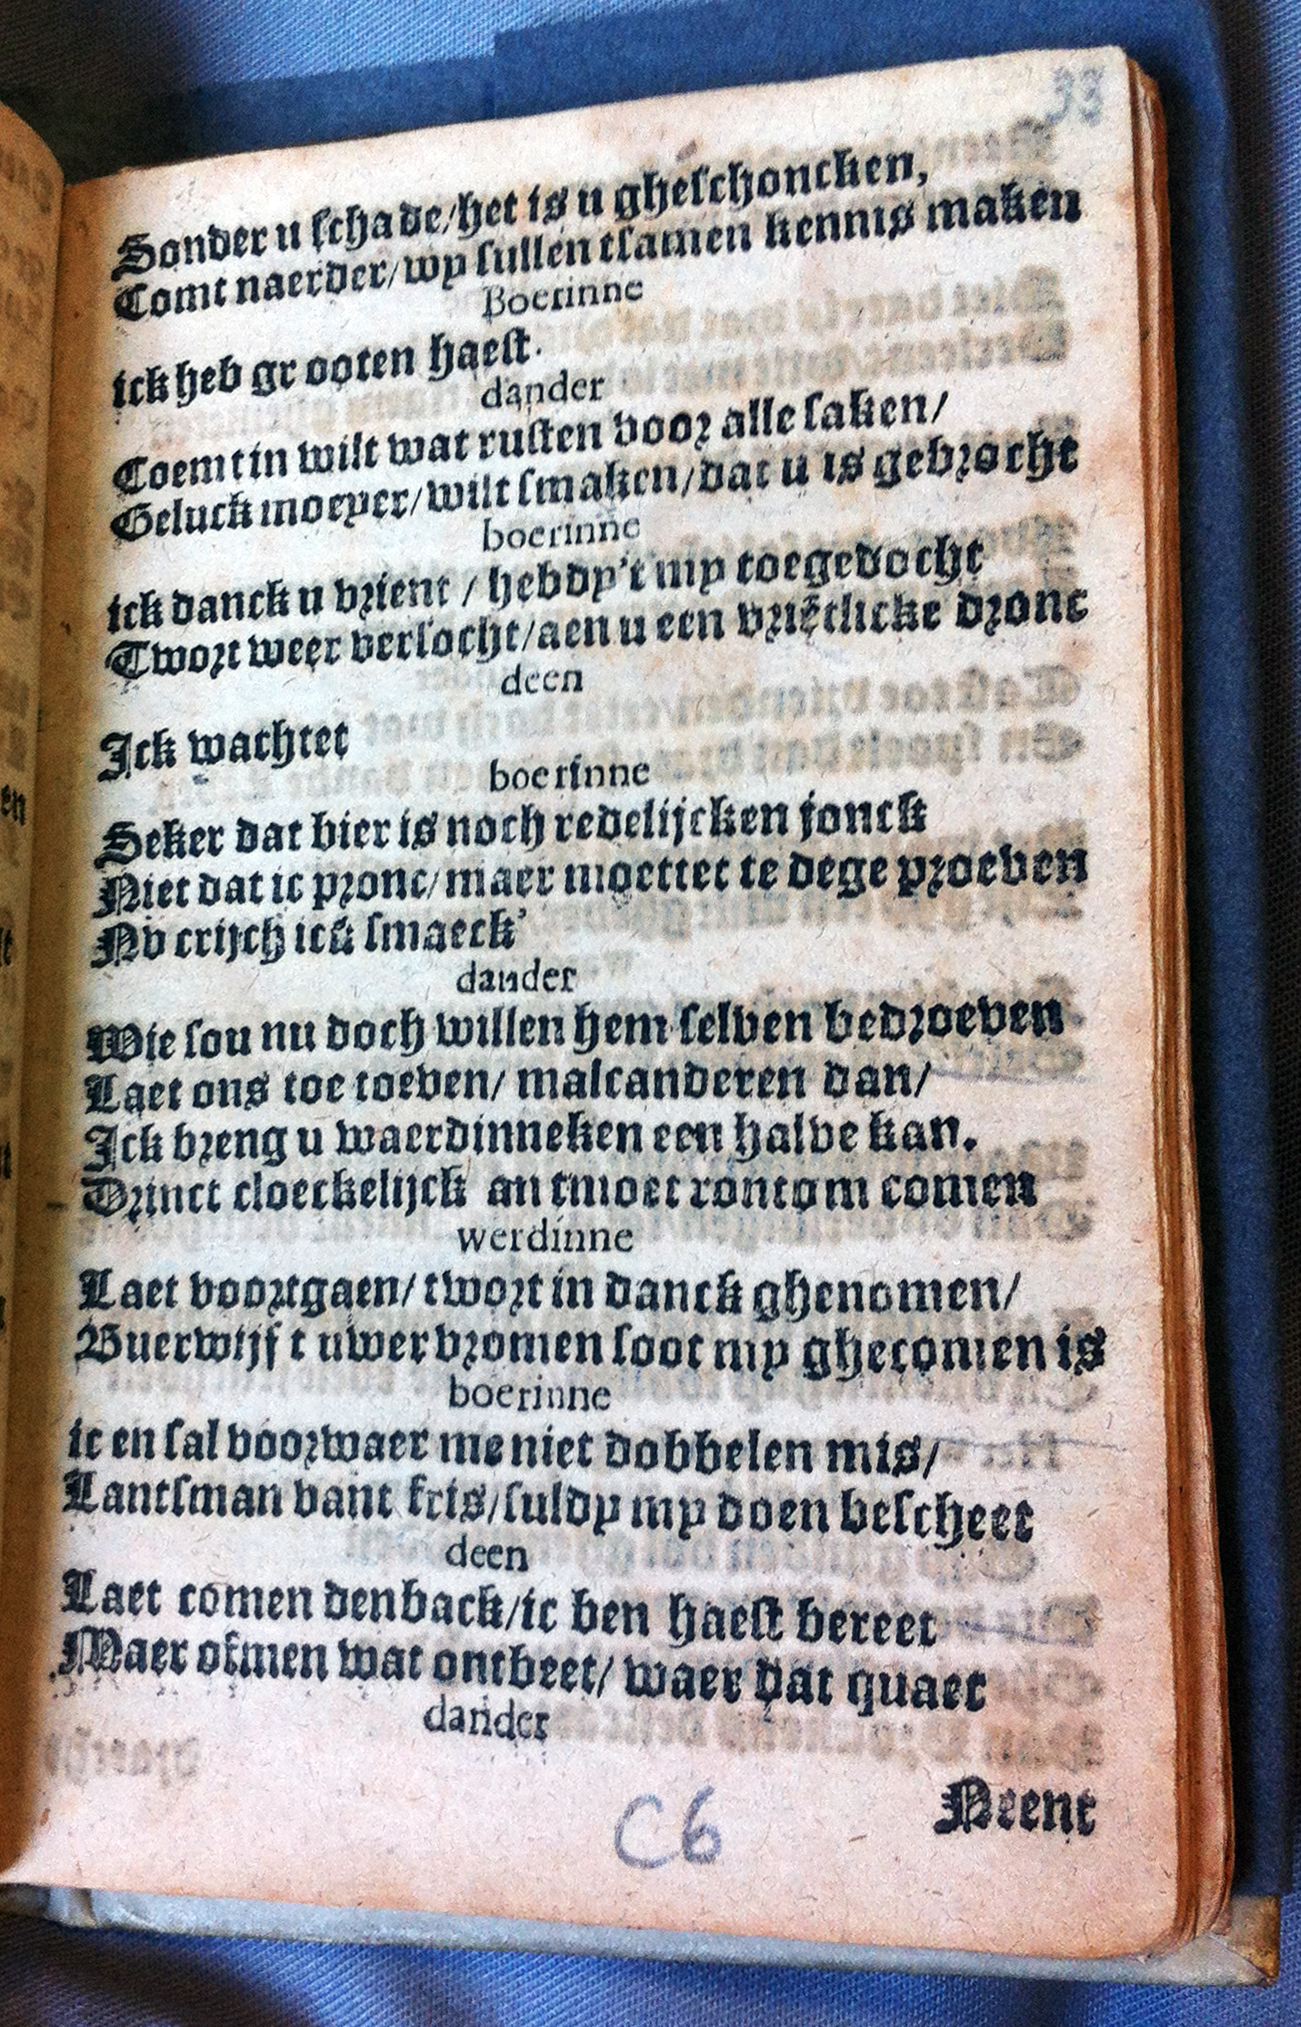 33
Sonder u schade/het is u gheschoncken,
Comt naerder/wy sullen tsamen kennis maken
Boerinne
ick heb gr ooten haest.
dander
Coemt in wilt wat rusten voor alle saken/
Geluck moeyer/wilt smaken/dat u is gebrocht
boerinne
ick danck u vrient / hebdy't my toegedocht
Twort weer versocht/aen u een vriẽtlicke dronc
deen
Ick wachtet
boerinne
Seker dat bier is noch redelijcken jonck
Niet dat ic pronc/maer moettet te dege proeven
Nv crijch ick smaeck'
dander
Wie sou nu doch willen hem selven bedroeven
Laet ons toe toeven/ malcanderen dan/
Ick breng u waerdinneken een halve kan.
Drinct cloeckelijck an tmoet rontom comen
werdinne
Laet voortgaen/ twort in danck ghenomen/
Buerwijf t uwer vromen soot my ghecomen is
boerinne
ic en sal voorwaer me niet dobbelen mis/
Lantsman vant kris/suldy my doen bescheet
deen
Laet comen den back/ic ben haest bereet
Maer ofmen wat ontbeet/ waer dat quaet
dander
Neent
C6